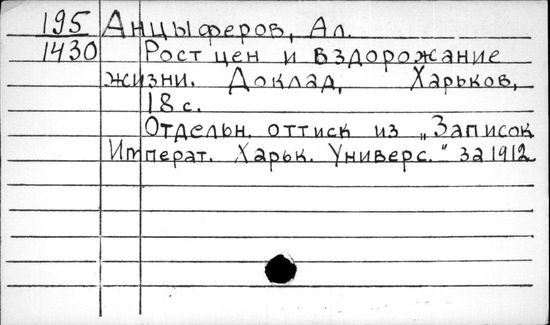 195 Анцыферов, Ал.
1430 Рост цен и вздорожание
жизни. Доклад, Харьков,
18 с.
Отдельн. оттиск из „Записок
Императ. Харьк. Универс." за 1912